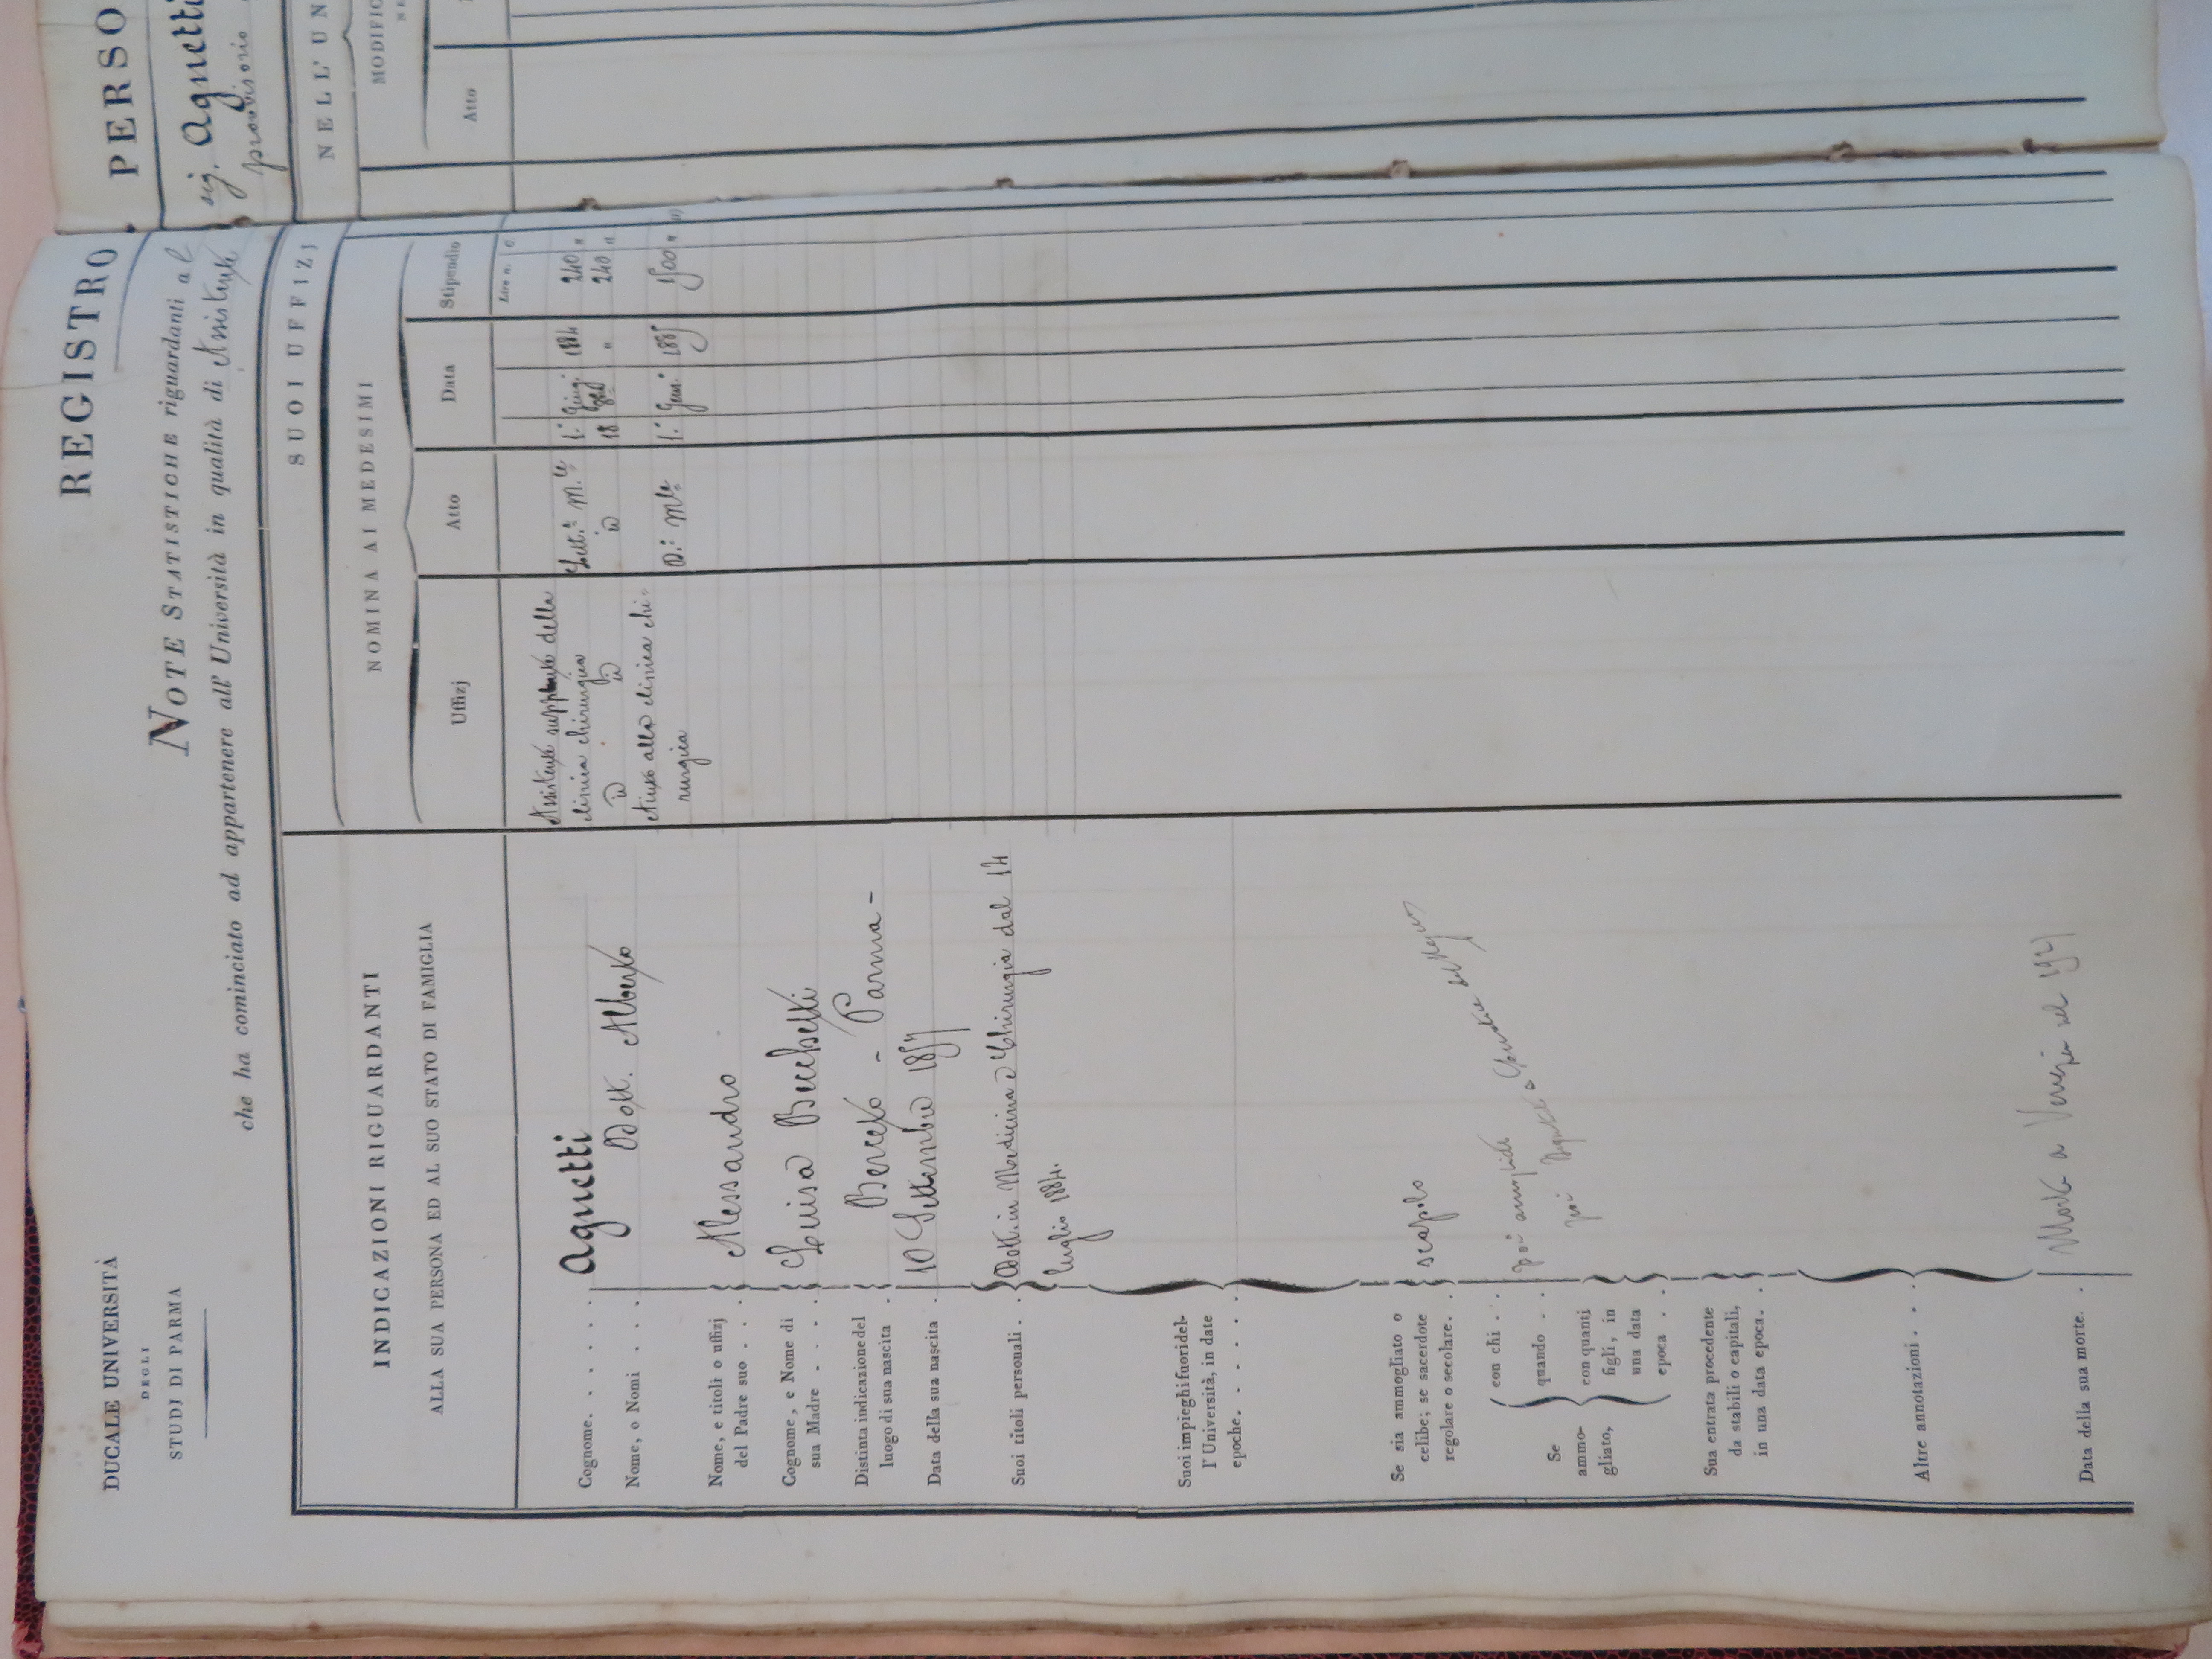 DUCALE UNIVERSITÀ
DEGLI
STUDJ DI PARMA
REGISTRO
PERSO
NOTE STATISTICHE riguardanti al
sig. Agnetti
che ha cominciato ad appartenere all' Università in qualità di Assistente
provvisorio
INDICAZIONI RIGUARDANTI
ALLA SUA PERSONA ED AL SUO STATO DI FAMIGLIA
SUOI UFFIZJ
NELL' UN
NOMINA AI MEDESIMI
MODIFIC
Uffizj
Atto
Data
Stipendio
Atto
Lire n. c.
Cognome. . . . . . Agnetti
Nome, o Nomi . . . Dott. Alberto
Nome, e titoli o uffizj
del Padre suo . . . Alessandro
Cognome, e Nome di
sua Madre . . . . Luisa Becchetti
Distinta indicazione del
luogo di sua nascita . Berceto - Parma -
Data della sua nascita . 10 Settembre 1857
Suoi titoli personali . . Dott. in Medicina e Chirurgia dal 14
luglio 1884.
Suoi impieghi fuori del-
l' Università, in date
epoche. . . . . .
Se sia ammogliato o
celibe; se sacerdote
regolare o secolare. . scapolo
Se
ammo-
gliato,
con chi . .
quando . .
con quanti
figli, in
una data
epoca . .
poi
poi
Sua entrata procedente
da stabili o capitali,
in una data epoca. .
Altre annotazioni. . .
Data della sua morte. . Morto a Venezia nel
Assistente supplente della
clinica chirurgica Lett.ª M.le 1.° Giug. 1884 240 "
id id id 18 " 240 "
Aiuto alla clinica chi-
rurgica D.° M.le 1.° Genn.° 1885 1500 "